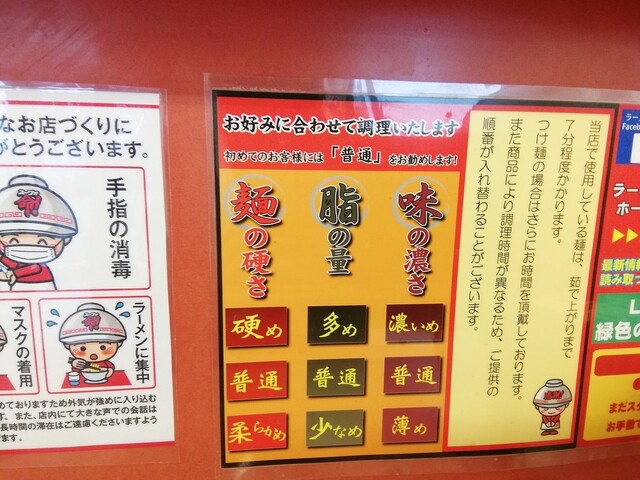 なお店づくりに
がとうございます。
手指の消毒
マスクの着用
ラーメンに集中
めておりますため外気が強めに入り込む
す。また、店内にて大きな声での会話は
長時間の滞在はご遠慮くださいますよう
ます。
お好みに合わせて調理いたします
初めてのお客様には「普通」をお勧めします!
麺の硬さ
脂の量
味の濃さ
硬め
多め
濃いめ
普通
普通
普通
柔らかめ
少なめ
薄め
当店で使用している麺は、茹で上がりまで
7分程度かかります。
つけ麺の場合はさらにお時間を頂戴しております。
また商品により調理時間が異なるため、ご提供の
順番が入れ替わることがございます。
ラー
Faceb
ラー
ホー
最新情報
読み取っ
L
緑色の
まだスタ
お手数で